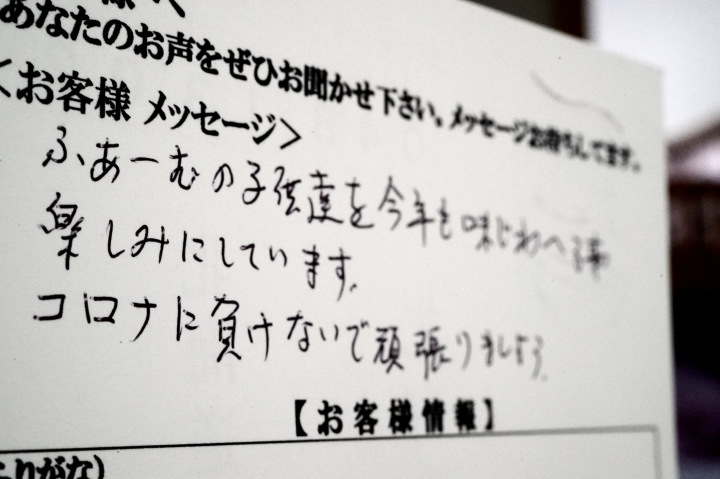 様へ
あなたのお声をぜひお聞かせ下さい。メッセージお待ちしてます。
＜お客様 メッセージ＞
ふぁーむの子供達を今年も味わへる事
楽しみにしています。
コロナに負けないで頑張りましょう。
【お客様情報】
ふりがな）